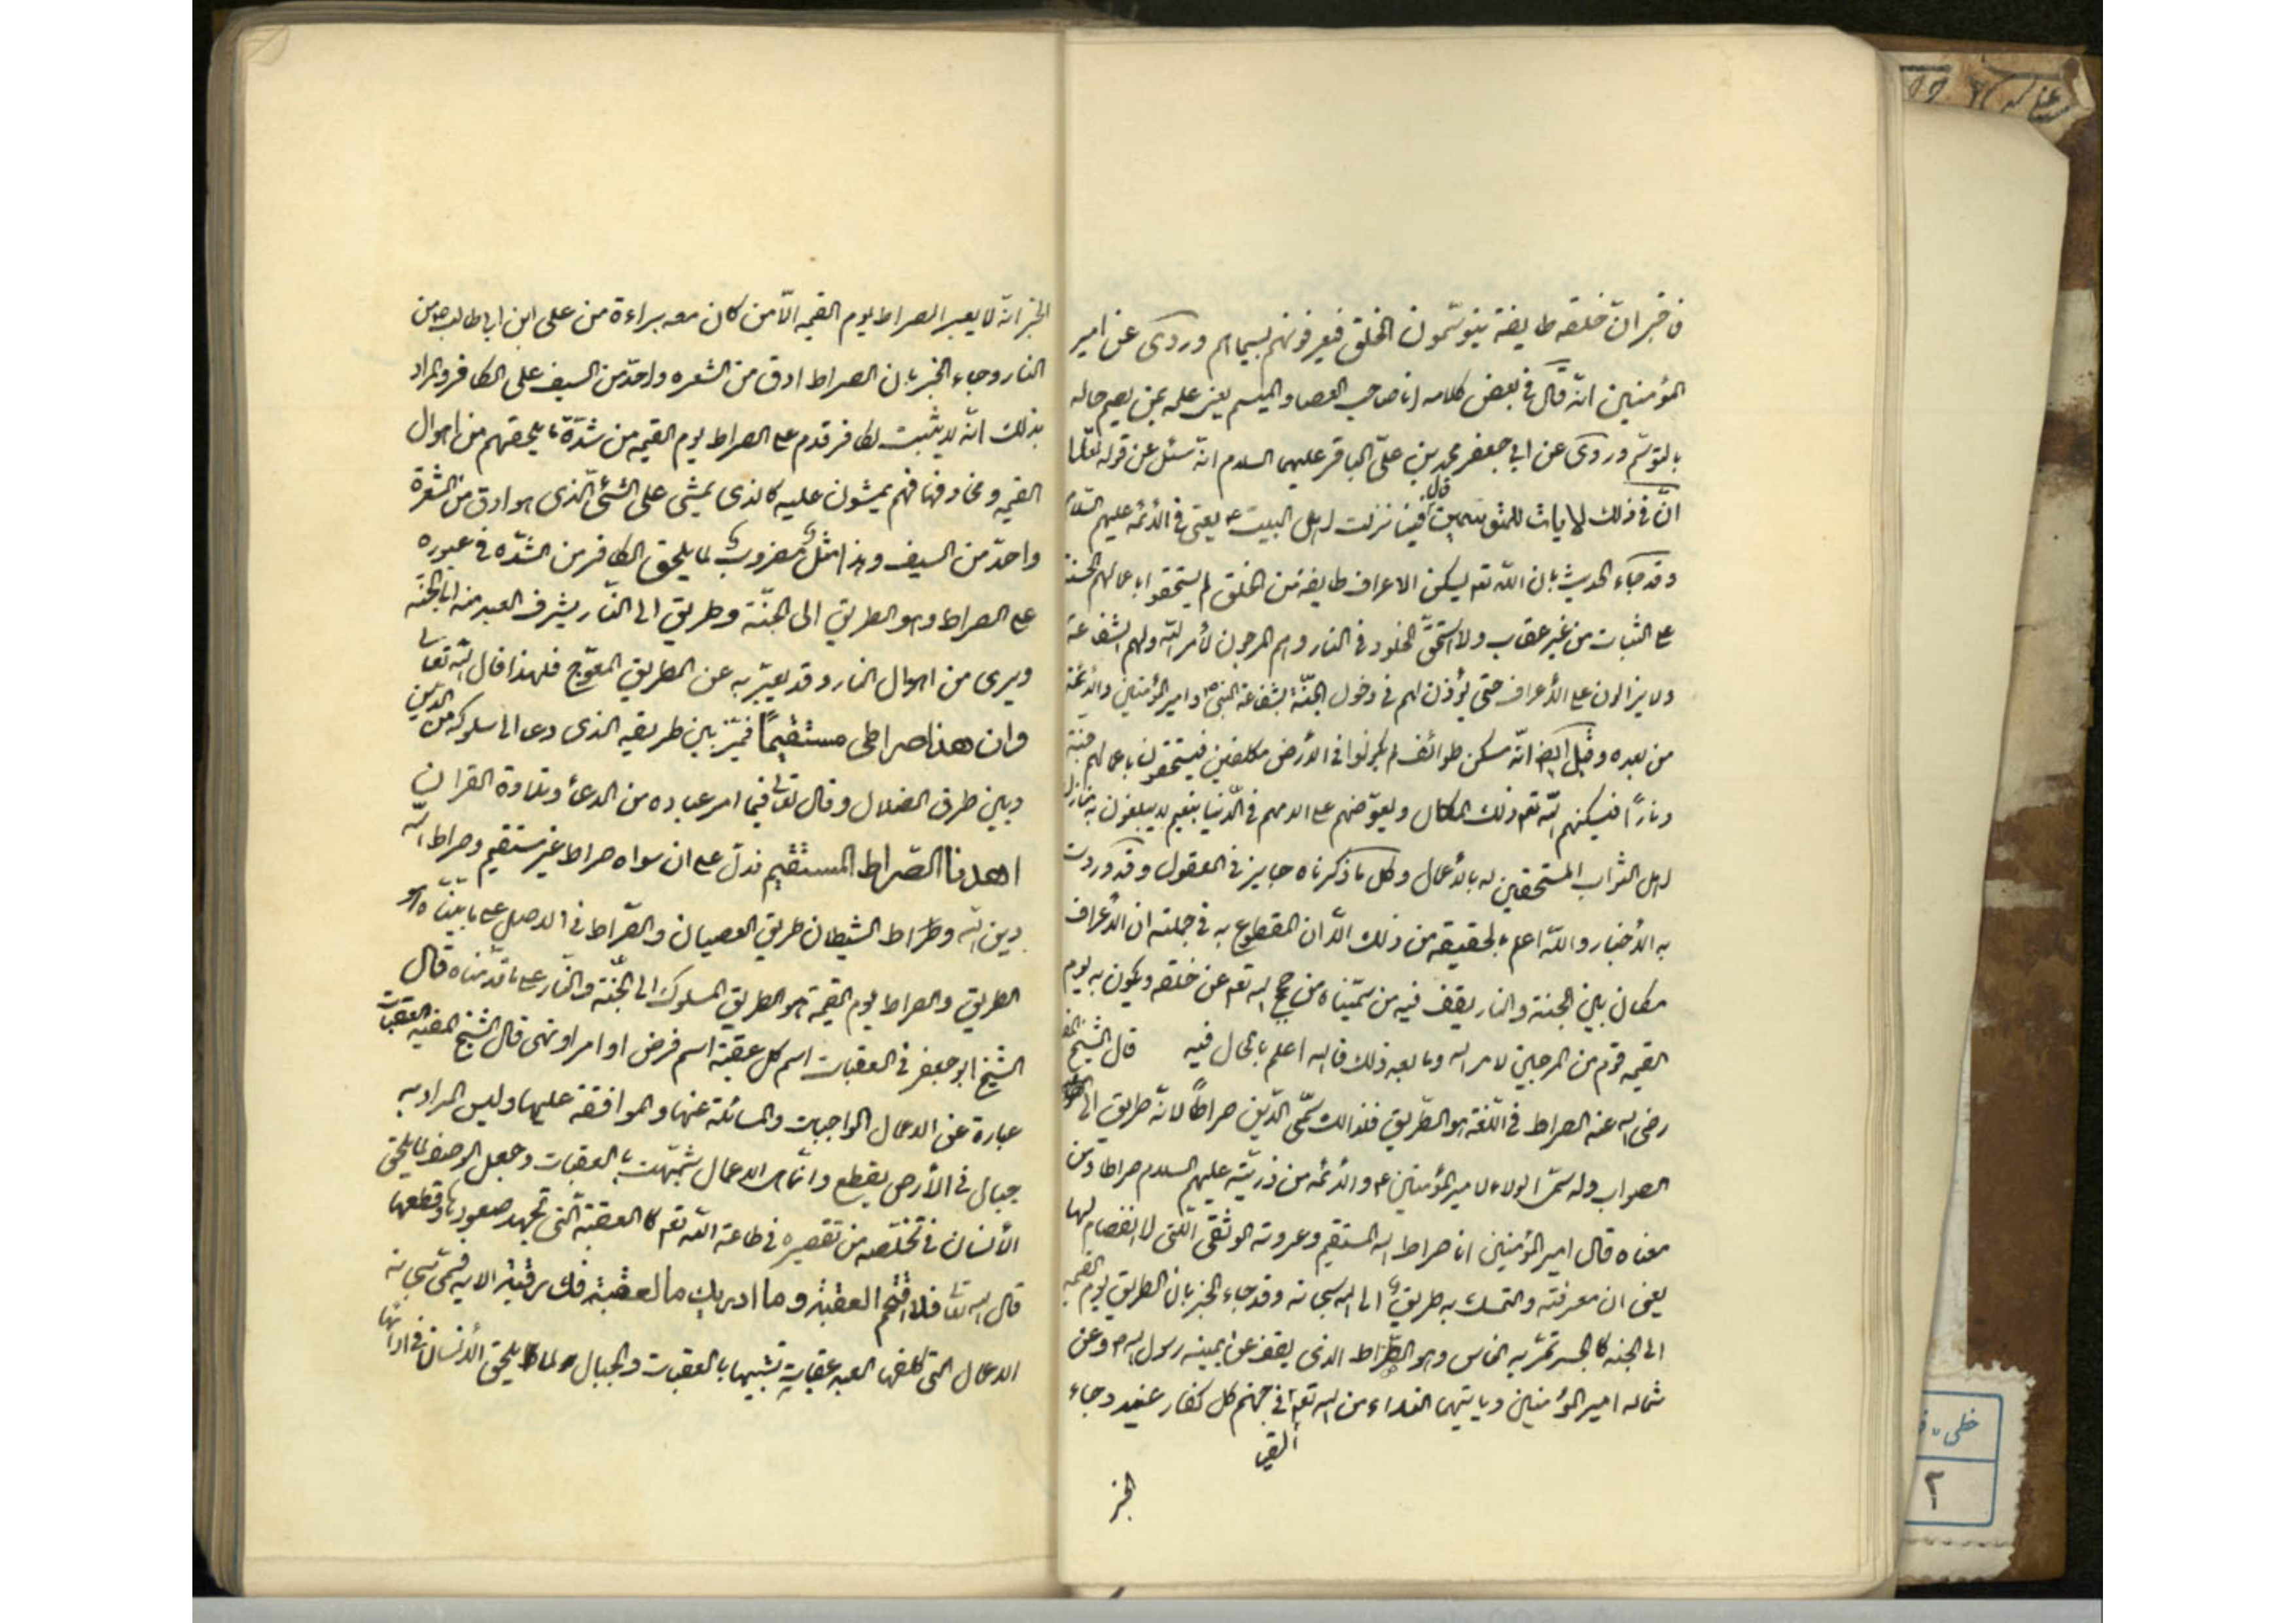 فاخبر ان خلقه طايفة يتوسّمون الخلق فيعرفونهم بسيماهم وروى عن امير
المؤمنين انه قال فى بعض كلامه انا صاحب العصا والميسم يعنى علمه بمن يعلم حاله
بالتوسّم وروى عن ابى جعفر محمد بن علىّ الباقر عليهما السلام انه سئل عن قوله تعالى
انّ فى ذلك لايات للمتوسمين قال فينا نزلت اهل البيت ع يعنى فى الأئمه عليهم السلام
وقد جاء الحديث بان الله تعه يسكن الاعراف طايفة من الخلق لم يستحقوا باعمالهم الحسنة
على الثبات من غير عقاب ولا استحقّ الخلود فى النار وهم المرجون لأمر الله ولهم الشفاعة
ولا يزالون على الأعراف حتى يؤذن لهم فى دخول الجنّة بشفاعة النبى ص وامير المؤمنين والأئمة
من بعده وقيل ايض انّه مسكن طوائف لم يكونوا فى الأرض مكلفين فيستحقون باعمالهم جنة
ونارًا فيسكنهم الله تعه ذلك المكال ويعوّضهم على الامهم فى الدّنيا بنعيم لا يبلغون به منازل
اهل الثواب المستحقين له بالأعمال وكل ما ذكرناه جايز فى العقول وقد وردت
به الأخبار والله اعلم بالحقيقه من ذلك الّا ان المقطوع به فى جملته ان الأعراف
مكان بين الجنة والنار يقف فيه من سمّيناه من حجج الله تعه عن خلقه ويكون به يوم
القيمه قوم من المرجين لامر الله وما بعد ذلك فالله اعلم بالحال فيه قال الشيخ المفيد
رضى الله عنه الصراط فى اللغة هو الطريق فلذالك سمّى الدّين صراطًا لانّه طريق الى
الصواب وله سمى الولاء لامير المؤمنين ع والأئمه من ذريّته عليهم السلام صراطا ومن
معناه قال امير المؤمنين انا صراط الله المستقيم وعروته الوثقى الّتى لا انفصام لها
يعنى ان معرفته والتمسك به طريق الى الله سبحانه وقد جاء الخبر بان الطريق يوم القيمه
الى الجنه كالجسر تمرّ به الناس وهو الصّراط الذى يقف عن يمينه رسول الله ص وعن
شماله امير المؤمنين وياتيهما النداء من الله تعه القيا فى جهنم كل كفار عنيد وجاء
الخبر
الخبر انه لا يعبر الصراط يوم القيمه الّا من كان معه براءة من على ابن ابى طالب ع من
النار وجاء الخبر بان الصراط ادق من الشعره واحدّ من السيف على الكافر والمراد
بذلك انّه لا يثبت لكافر قدم على الصراط يوم القيمه من شدّة ما يلحقهم من اهوال
القيمه ومخاوفها فهم يمشون عليه كالذى يمشى على الشئ الذى هو ادق من الشعرة
واحدّ من السيف وهذا مثل مضروب لما يلحق الكافر من الشدّه فى عبوره
على الصراط وهو الطريق الى الجنّة وطريق الى النّار يشرف العبد منه الى الجنّه
ويرى من اهوال النار وقد يعبّر به عن الطريق المعوّج فلهذا قال الله تعالى
وان هذا صراطى مستقيمًا فميّز بين طريقه الذى دعى الى سلوكه من الدّين
وبين طرق الضلال وقال تعالى فيما امر عباده من الدعاء وتلاوة القران
اهدنا الصّراط المستقيم فدلّ على ان سواه صراط غير مستقيم وصراط الله
دين الله وصراط الشيطان طريق العصيان والصّراط فى الاصل على ما بيّنّاه هو
الطريق والصراط يوم القيمة هو الطريق المسلوك الى الجنّة والنّار على ما قدّمناه قال
الشيخ ابو جعفر فى العقبات اسم كل عقبة اسم فرض او امر او نهى قال الشيخ المفيد العقبات
عبارة عن الاعمال الواجبات والمسائلة عنها والموافقة عليها وليس المراد به
جبال فى الأرض يقطع وانّما هى الاعمال شبّهت بالعقبات وجعل الوصف لما يلحق
الأنسان فى تخلّصه من تقصيره فى طاعة الله تعه كالعقبة الّتى تجهد صعودها وقطعها
قال الله تعا فلا اقتحم العقبة وما ادريك ما العقبة فك رقبة الايه فسمى سبحانه
الاعمال التى كلفها العبد عقبات تشبيها بالعقبات والجبال لما يلحق الأنسان فى ادائها